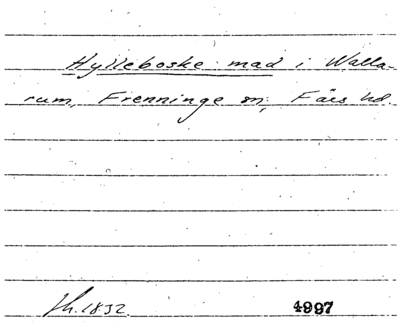 Hylleboske mad i Walla-
rum, Frenninge sn, Färs hd.
1832. 4997